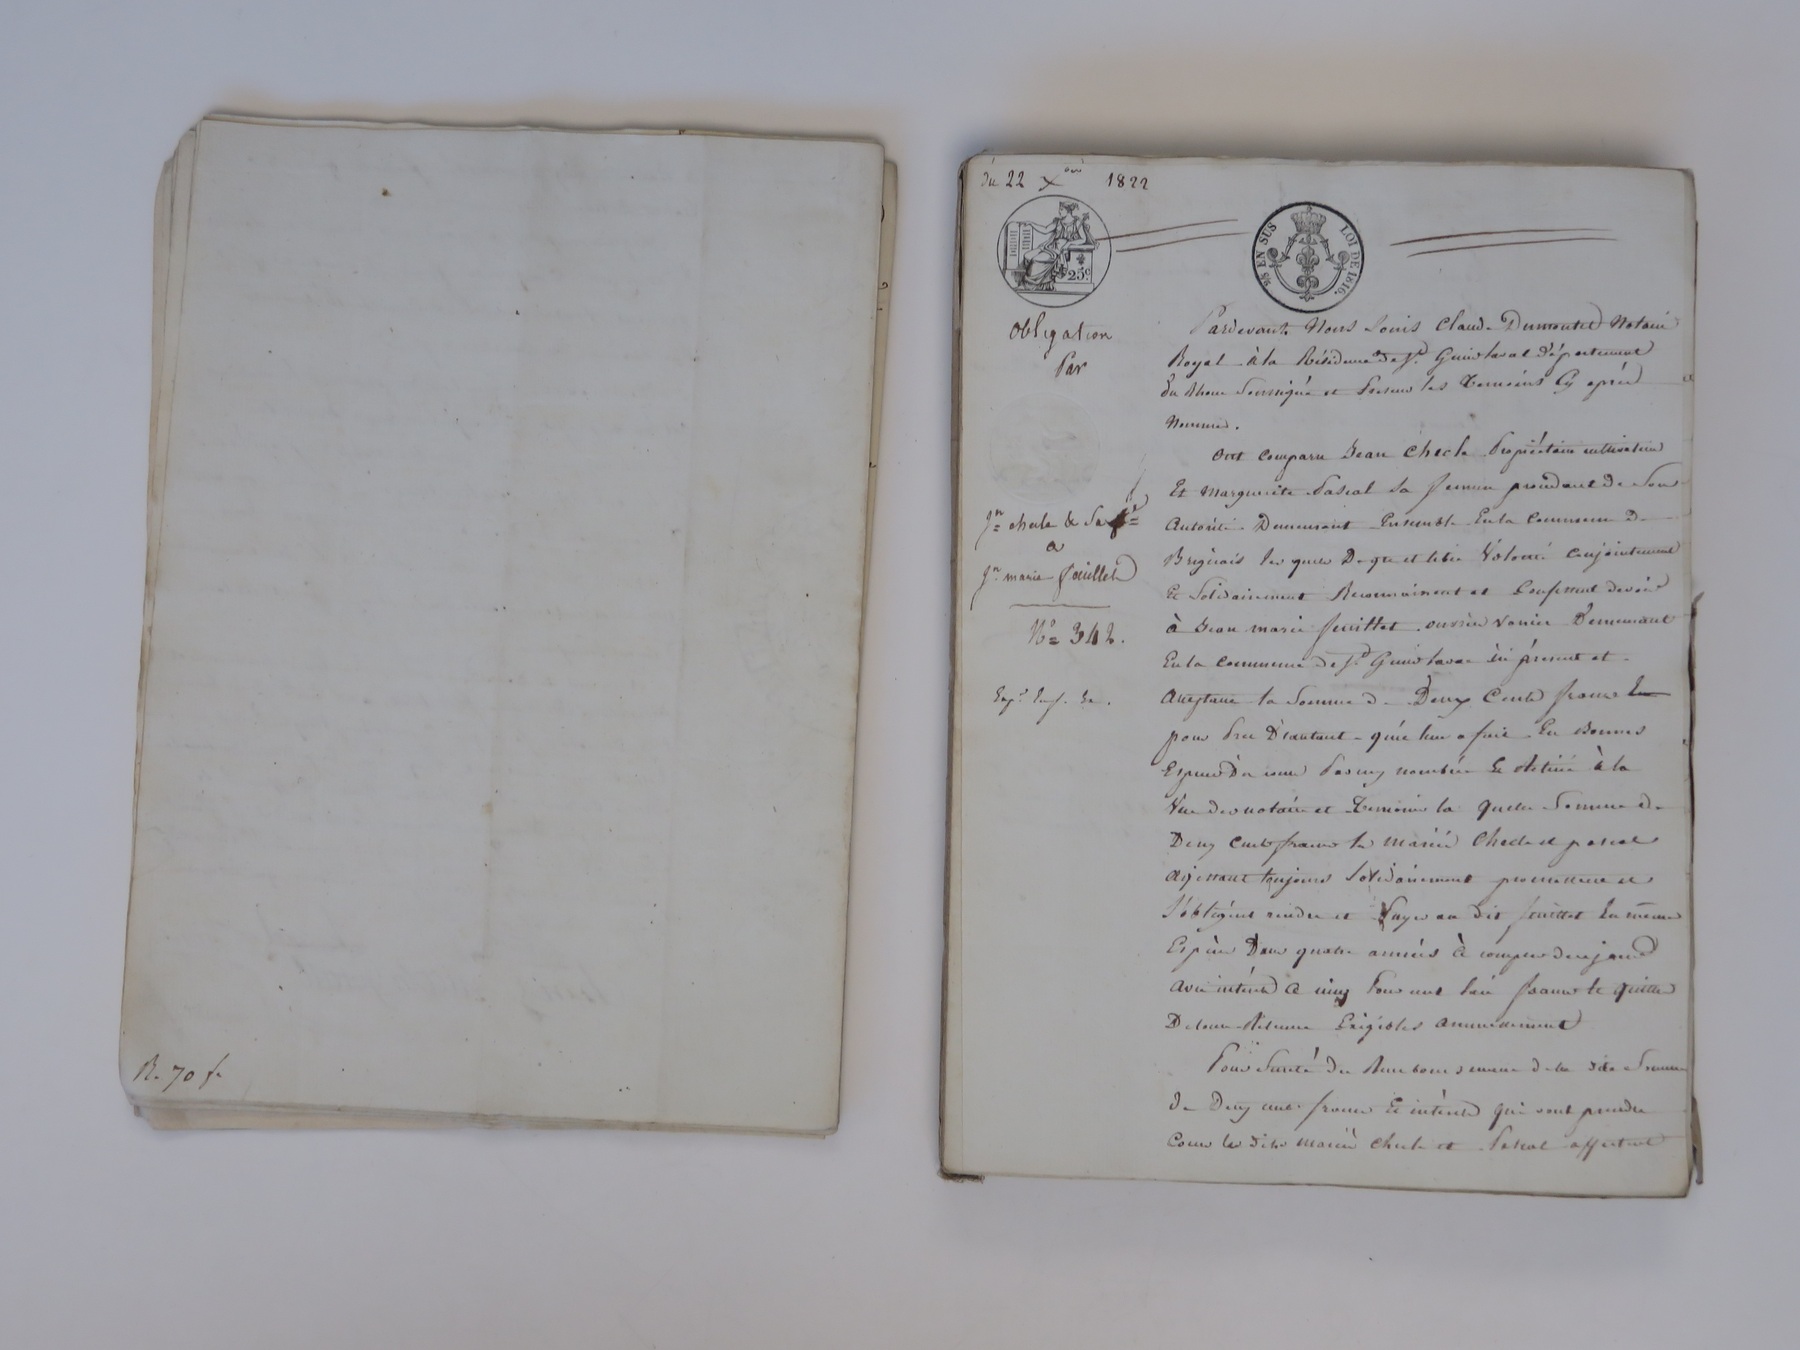 R. 70 f.
du 22 Xbre 1822
25c.
EN SUS LOI DE 1816.
Obligation
Par
Jn chele & Sa fe
a
Jn marie feuillet
No 342.
Pardevant Nous Louis Claude Dumortel Notaire
Royal à la Résidence de St. Genis Laval Département
du Rhone Soussigné et Présens les Temoins Cy après
Nommés.
Ont Comparu Jean Chele Propriétaire cultivateur
Et Marguerite Pascal Sa femme procédant de Son
Autorité Demeurant Ensemble En la Commune de
Brignais les quels De gre et libre Volonté Conjointement
Et Solidairement Reconnoissent et Confessent devoir
à Jean marie feuillet ouvrier Demeurant
En la Commune de St Genis Laval ici présent et
Acceptant la Somme de Deux Cents francs
pour Pret D'autant qu'il leur a fait En Bonnes
Especes de cours nombrée Et Retirée à la
Vue des notaire et Temoins la quelle Somme de
Deux Cents francs les mariés Chele et pascal
agissant toujours Solidairement promettent et
S'obligent rendre et Payer au dit feuillet En même
Espèces Dans quatre années à compter de ce jour
Avec intérêts a cinq Pour cent Par franc le quitte
De toute Retenue Exigibles annuellement
Pour Sureté du Remboursement de la dite Somme
de Deux cents francs Et intérêts qui vont prendre
Cours les dits mariés Chele et Pascal affectent